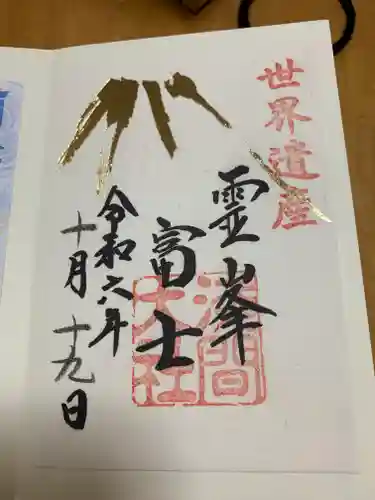 世界遺産
霊峯
冨士
浅間
大社
令和六年
十月十九日